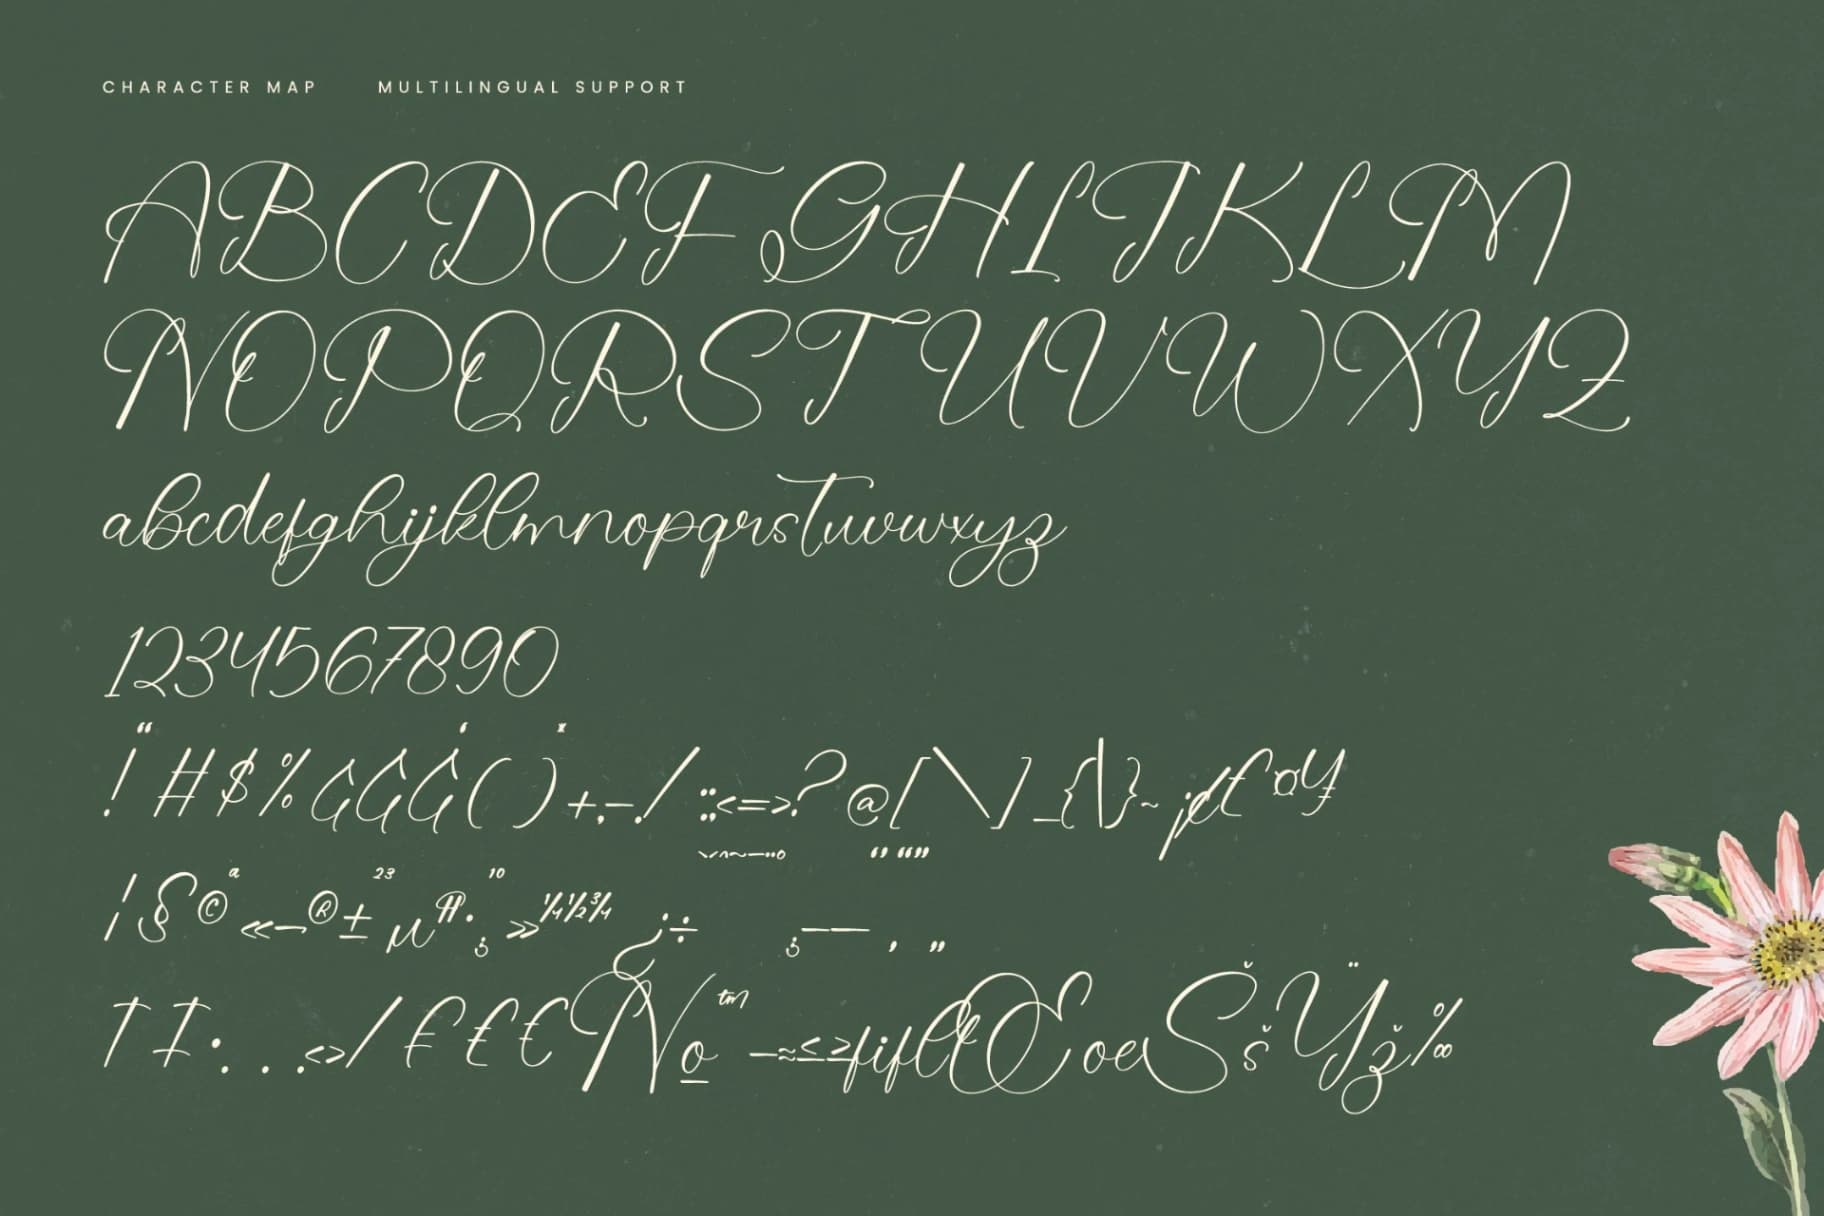 CHARACTER MAP MULTILINGUAL SUPPORT
ABCDEFGHIJKLM
NOPQRSTUVWXYZ
abcdefghijklmnopqrstuvwxyz
1234567890
!“#$%&&&‘()*+,-./:;<=>?@[\]_{|}~¡¢£¤¥
‘’“”
¦§©ª«—®±²³µ¶·¸¹º»¼½¾¿÷¸——‚„
†‡•...‹›/₣₤€№™—≈≤≥fiflŒoeŠšŸž‰